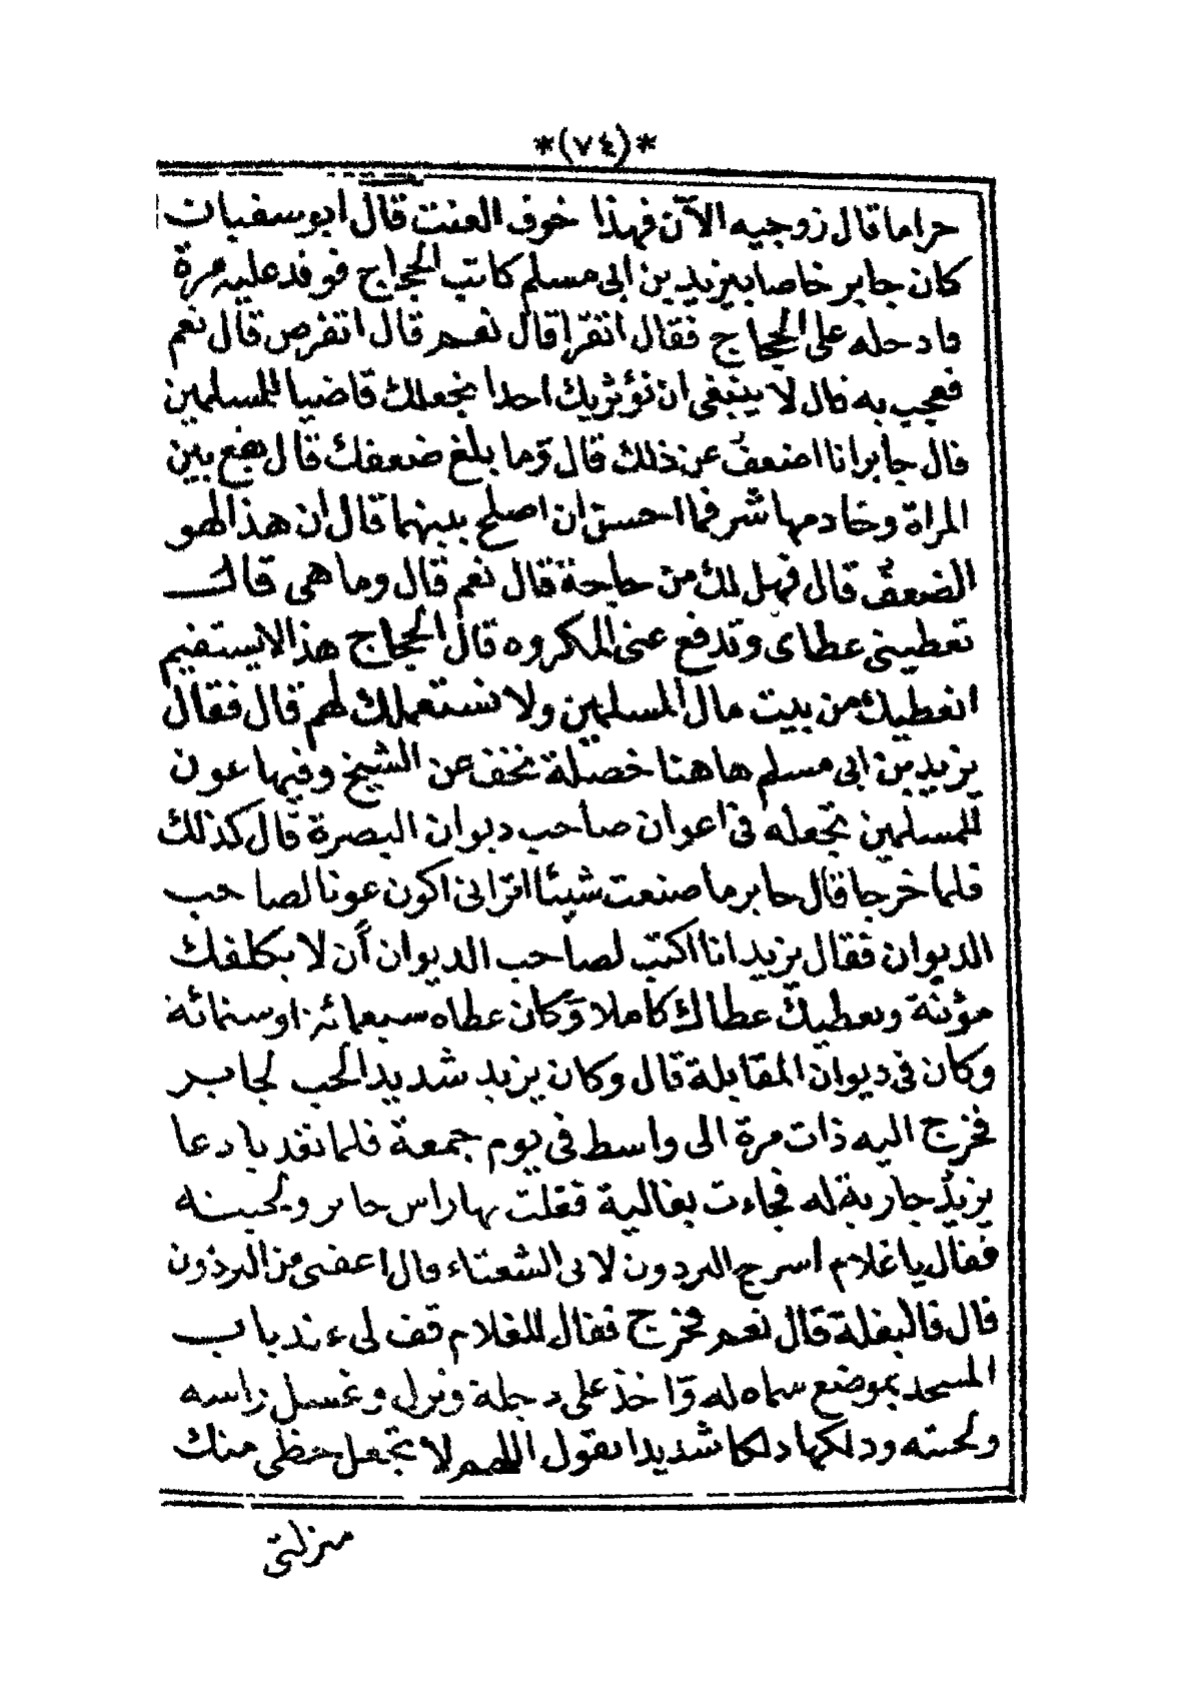 *(٧٤)*
حراما قال زوجيه الآن فهذا خوف العنت قال ابو سفيان
كان جابر خاصا بيزيد بن ابى مسلم كاتب الحجاج فوفد عليه مرة
فادخله على الحجاج فقال اتقرا قال نعم قال اتفرض قال نعم
فعجب به فال لا ينبغى ان نؤثر بك احدا نجعلك قاضيا للمسلمين
فال جابر انا اضعف عن ذلك قال وما بلغ ضعفك قال يقع بين
المراة وخادمها شر فما احسن ان اصلح بينهما قال ان هذا لهو
الضعف قال فهل لك من حاجة قال نعم قال وما هى قال
تعطينى عطاى وتدفع عنى المكروه قال الحجاج هذا لا يستقيم
انعطيك من بيت مال المسلمين ولا نستعملك لهم قال فقال
يزيد بن ابى مسلم هاهنا خصلة تخف عن الشيخ وفيها عون
للمسلمين تجعله فى اعوان صاحب ديوان البصرة قال كذلك
فلما خرجا قال جابر ما صنعت شيئا اترانى اكون عونا لصاحب
الديوان فقال يزيد انا اكتب لصاحب الديوان أن لا يكلفك
مؤنة ويعطيك عطاك كاملا وكان عطاه سبعمائة او ستمائة
وكان فى ديوان المقابلة قال وكان يزيد شديد الحب لجابر
فخرج اليه ذات مرة الى واسط فى يوم جمعة فلما تغديا دعا
يزيد جارية له فجاءت بغالية فغلت بها راس جابر ولحيته
فقال يا غلام اسرج البردون لابى الشعثاء قال اعفنى من البرذون
قال فالبغلة قال نعم فخرج فقال للغلام قف لى عند باب
المسجد بموضع سماه له واخذ على دجلة ونزل وغسل راسه
ولحيته ودلكها دلكا شديدا يقول اللهم لا تجعل حظى منك
منزلتى